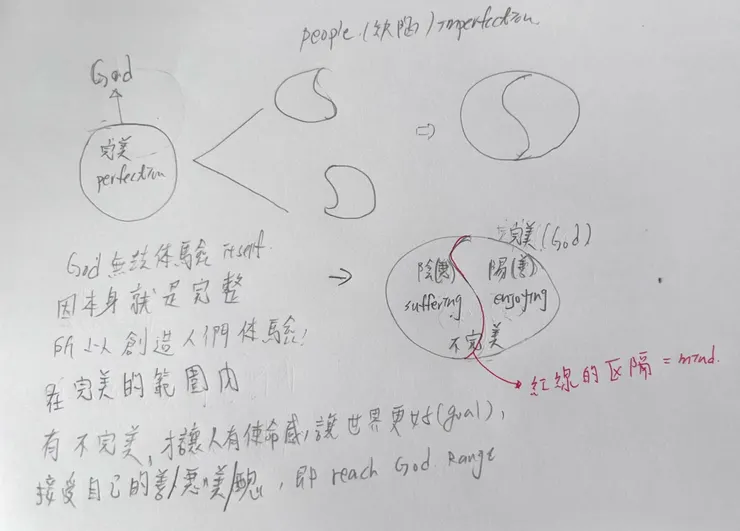 people.(欽陷)imperfection.
God
完美
perfection
God 無法体驗 itself.
因本身就是完整
所以創造人們体驗!
在完美的範圍内
完美(God)
陰(惡) 陽(善)
suffering enjoying
不完美
紅線的区隔 = mind.
有不完美,才讓人有使命感,讓世界更好(goal),
接受自己的善/惡"美/醜,即 reach God Range